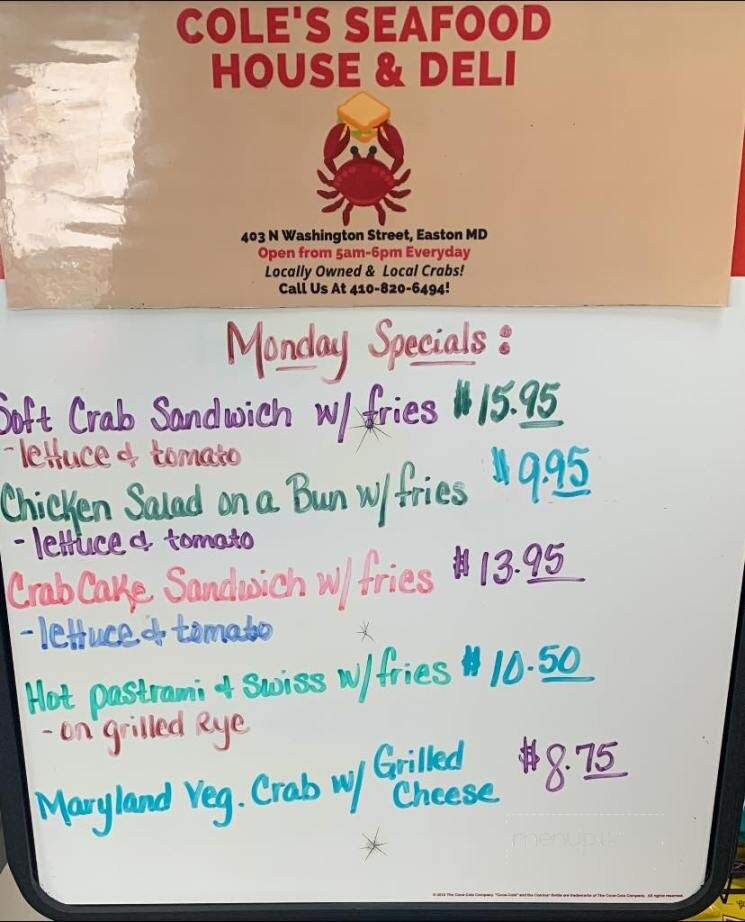 COLE'S SEAFOOD
HOUSE & DELI
403 N Washington Street, Easton MD
Open from 5am-6pm Everyday
Locally Owned & Local Crabs!
Call Us At 410-820-6494!
Monday Specials:
Soft Crab Sandwich w/ fries $15.95
- lettuce & tomato
Chicken Salad on a Bun w/ fries $9.95
- lettuce & tomato
Crab Cake Sandwich w/ fries $13.95
- lettuce & tomato
Hot pastrami & Swiss w/ fries $10.50
- on grilled Rye
Maryland Veg. Crab w/ Grilled Cheese $8.75
menupix